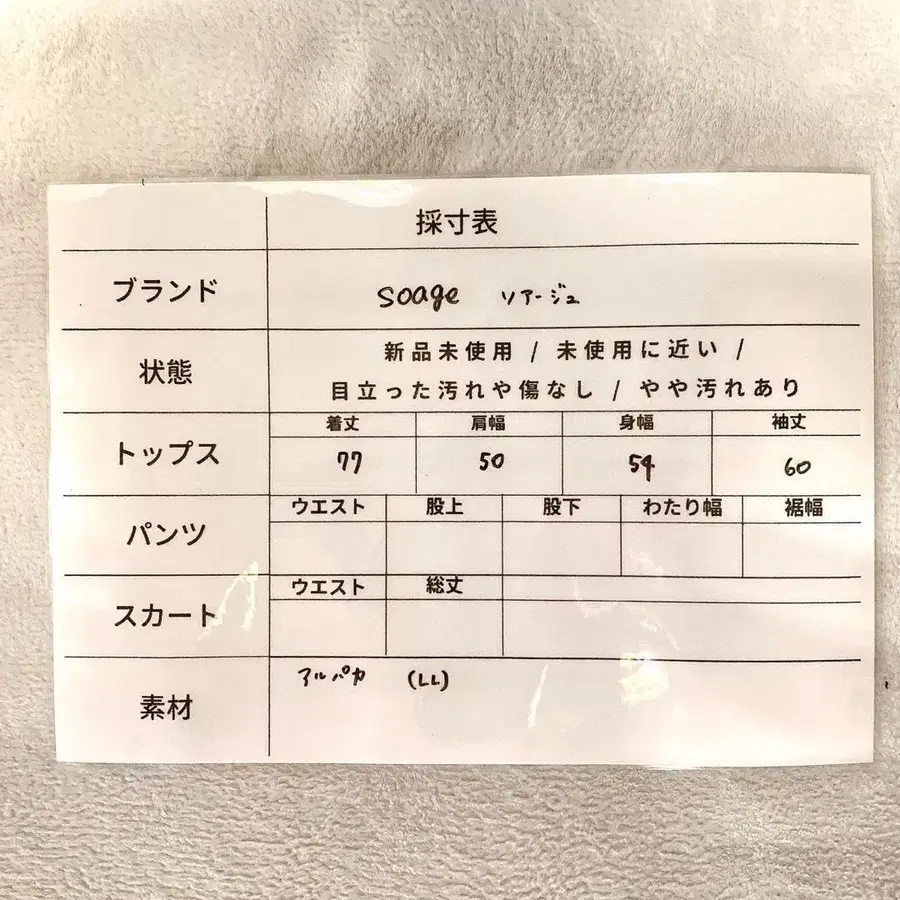 採寸表
ブランド soage ソアージュ
状態 新品未使用 / 未使用に近い /
目立った汚れや傷なし / やや汚れあり
着丈 肩幅 身幅 袖丈
トップス 77 50 54 60
ウエスト 股上 股下 わたり幅 裾幅
パンツ
ウエスト 総丈
スカート
素材 アルパカ (LL)